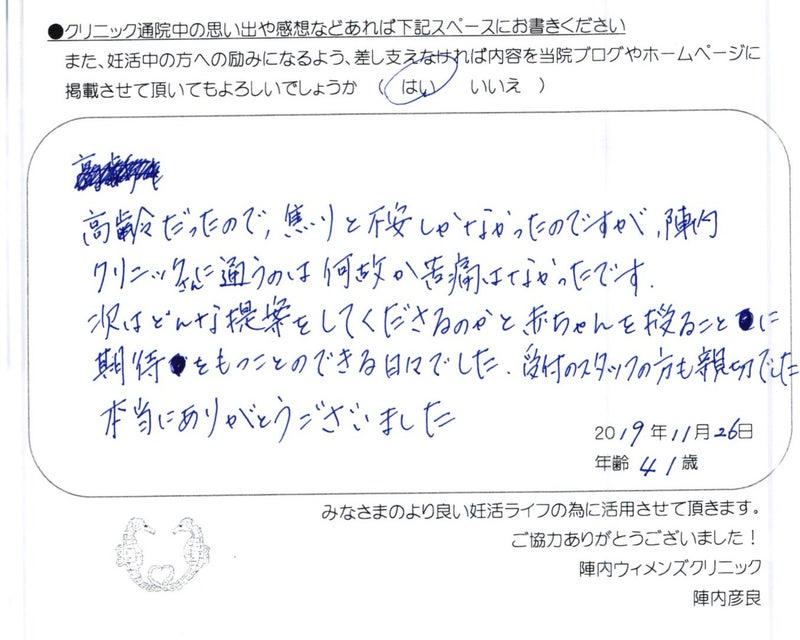 ●クリニック通院中の思い出や感想などあれば下記スペースにお書きください
また、妊活中の方への励みになるよう、差し支えなければ内容を当院ブログやホームページに
掲載させて頂いてもよろしいでしょうか （ はい いいえ ）
高齢だったので、焦りと不安しかなかったのですが、陣内
クリニックさんに通うのは何故か苦痛はなかったです.
次はどんな提案をしてくださるのかと赤ちゃんを授ることに
期待をもつことのできる日々でした. 受付のスタッフの方も親切でした
本当にありがとうございました
2019年11月26日
年齢 41歳
みなさまのより良い妊活ライフの為に活用させて頂きます。
ご協力ありがとうございました！
陣内ウィメンズクリニック
陣内彦良